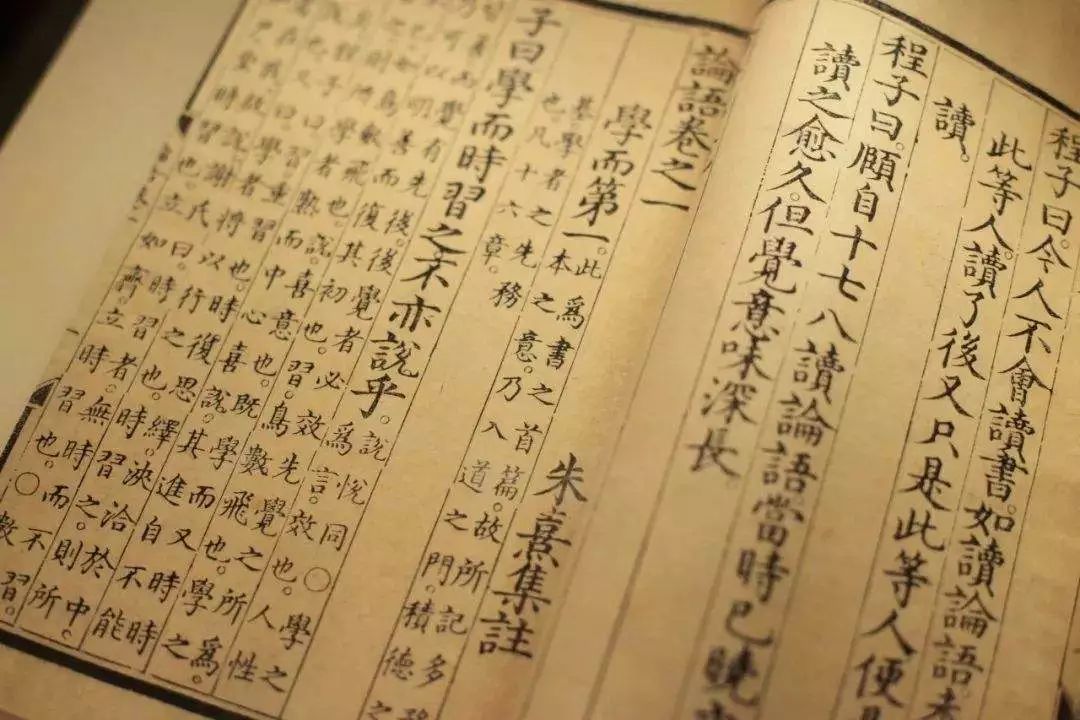 程子曰。今人不會讀書。如讀論語
此等人。讀了後又只是此等人便
讀。
程子曰。頤自十七八讀論語當時已曉
讀之愈久。但覺意味深長
論語卷之一
朱熹集註
學而第一。此為書之首篇。故所記多
本之意。乃入道之門。積德之
基。學者之先務
也。凡十六章。
子曰學而時習之不亦說乎。說悅同○學之
為言。效也。人性
善而覺有先後。後覺者必效先覺之所為。
可以明善而復其初也。習。鳥數飛也。學之
已。如鳥數飛也。說。喜意也。既學而又時時
則所學者熟。而中心喜說。其進自不能
程子曰。習。重習也。時復思繹。浹洽於中。
也。又曰學者將以行之也。時習之。則所
在我。故說。謝氏曰。時習者。無時而不習。
尸。坐時習也。立如齊。立時習也。○